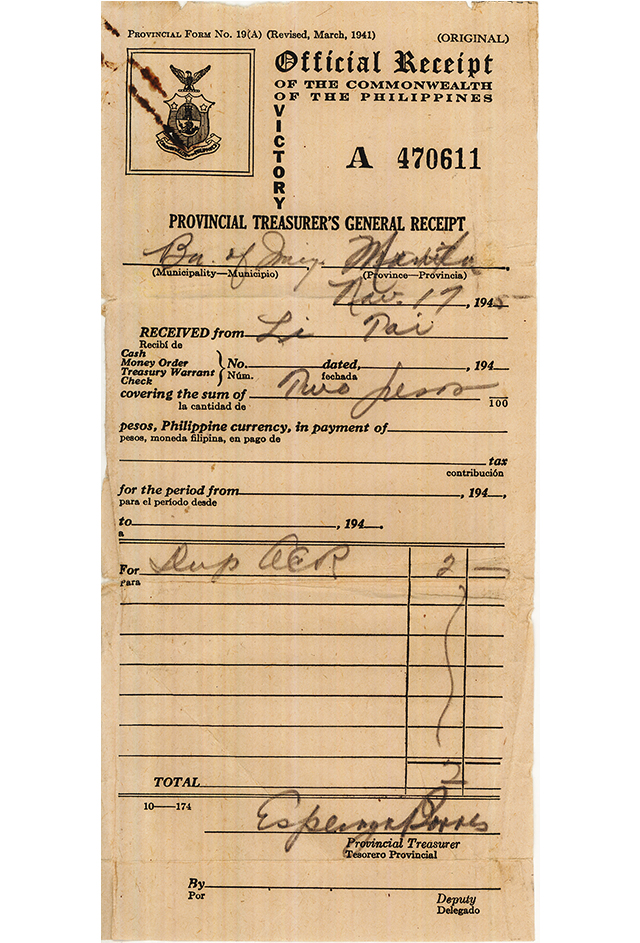 PROVINCIAL FORM NO. 19(A) (Revised, March, 1941)
(ORIGINAL)
Official Receipt
OF THE COMMONWEALTH
OF THE PHILIPPINES
VICTORY
A 470611
PROVINCIAL TREASURER'S GENERAL RECEIPT
Bu. of Manila
(Municipality—Municipio) (Province—Provincia)
Nov. 17, 1945
RECEIVED from Li Tai
Recibí de
Cash
Money Order
Treasury Warrant
Check
No. dated, , 194
Núm. fechada
covering the sum of Two pesos 100
la cantidad de
pesos, Philippine currency, in payment of
pesos, moneda filipina, en pago de
tax
contribución
for the period from , 194 ,
para el período desde
to , 194 .
a
For Dup ACR 2 —
Para
TOTAL 2
10—174
Provincial Treasurer
Tesorero Provincial
By
Por
Deputy
Delegado